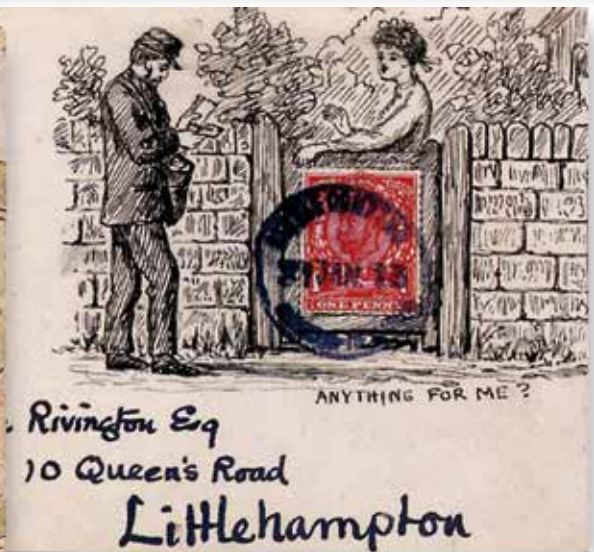 JAN
ONE PENNY
ANYTHING FOR ME ?
Rivington Esq
10 Queen's Road
Littlehampton